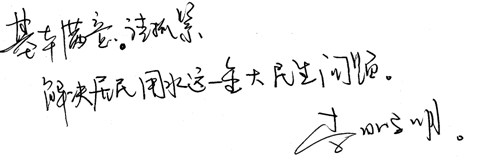 基本满意。请抓紧
解决居民用水这一重大民生问题。